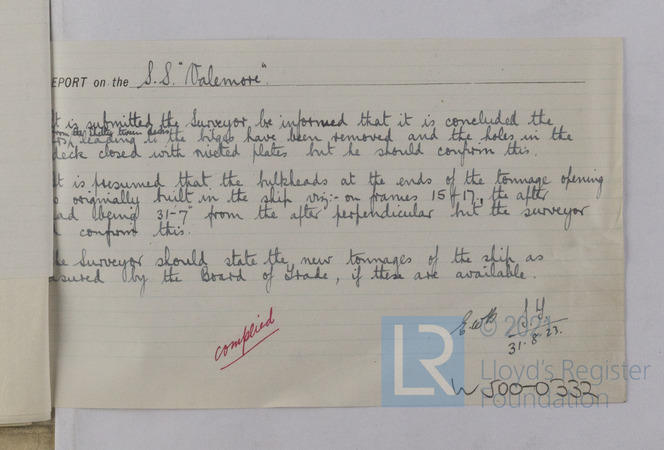 EPORT on the S.S. "Valemore".
it is submitted the Surveyor be informed that it is concluded the
from the shelter tween decks
leading to the bilges have been removed and the holes in the
deck closed with riveted plates but he should confirm this.
it is presumed that the bulkheads at the ends of the tonnage opening
originally built in the ship viz:- on frames 15 & 17, the after
being 31-7" from the after perpendicular but the surveyor
confirm this.
he Surveyor should state the new tonnages of the ship as
asured by the Board of Trade, if these are available.
complied
31.8.23.
© 2021
LR
Lloyd's Register
Foundation
W500-0332